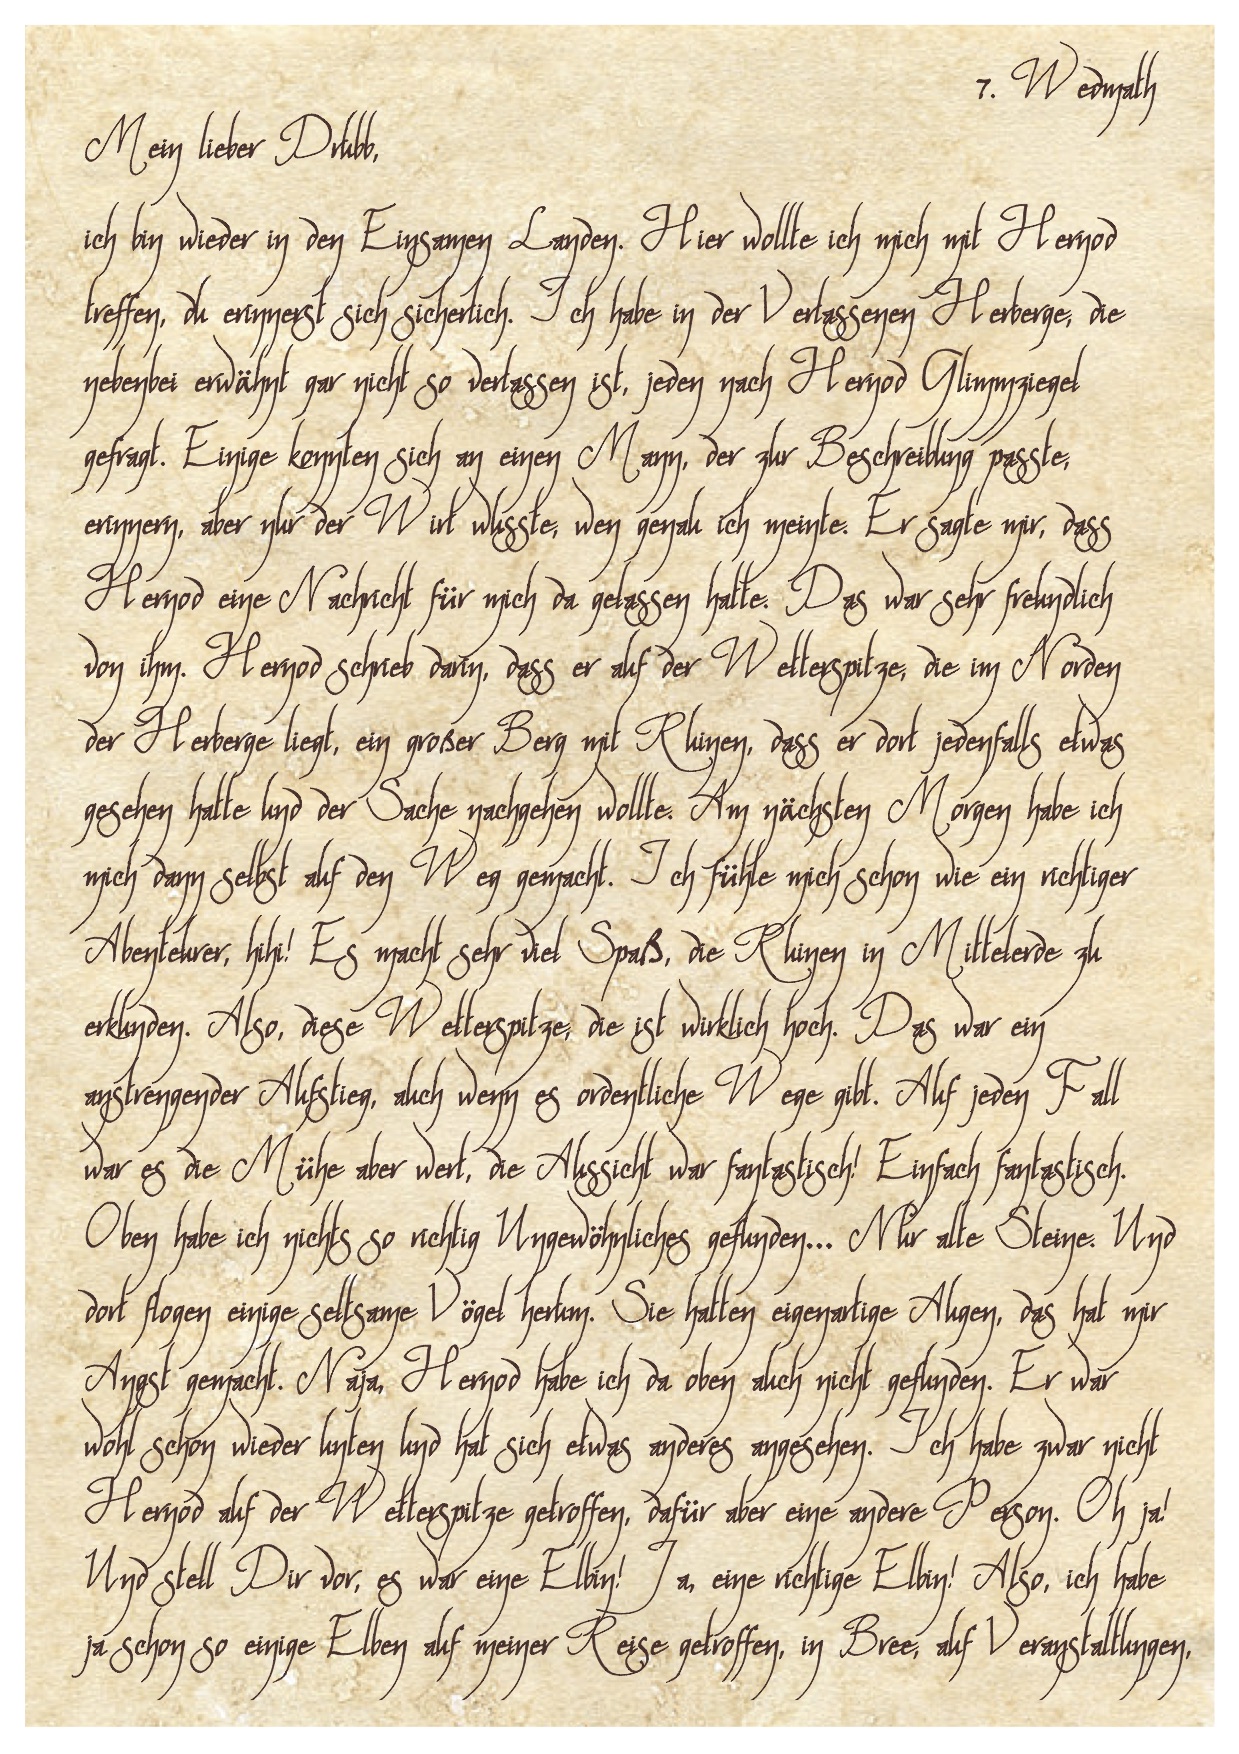 7. Wedmath
Mein lieber Drubb,
ich bin wieder in den Einsamen Landen. Hier wollte ich mich mit Hernod
treffen, du erinnerst sich sicherlich. Ich habe in der Verlassenen Herberge, die
nebenbei erwähnt gar nicht so verlassen ist, jeden nach Hernod Glimmziegel
gefragt. Einige konnten sich an einen Mann, der zur Beschreibung passte,
erinnern, aber nur der Wirt wusste, wen genau ich meinte. Er sagte mir, dass
Hernod eine Nachricht für mich da gelassen hatte. Das war sehr freundlich
von ihm. Hernod schrieb darin, dass er auf der Wetterspitze, die im Norden
der Herberge liegt, ein großer Berg mit Ruinen, dass er dort jedenfalls etwas
gesehen hatte und der Sache nachgehen wollte. Am nächsten Morgen habe ich
mich dann selbst auf den Weg gemacht. Ich fühle mich schon wie ein richtiger
Abenteurer, hihi! Es macht sehr viel Spaß, die Ruinen in Mittelerde zu
erkunden. Also, diese Wetterspitze, die ist wirklich hoch. Das war ein
anstrengender Aufstieg, auch wenn es ordentliche Wege gibt. Auf jeden Fall
war es die Mühe aber wert, die Aussicht war fantastisch! Einfach fantastisch.
Oben habe ich nichts so richtig Ungewöhnliches gefunden... Nur alte Steine. Und
dort flogen einige seltsame Vögel herum. Sie hatten eigenartige Augen, das hat mir
Angst gemacht. Naja, Hernod habe ich da oben auch nicht gefunden. Er war
wohl schon wieder unten und hat sich etwas anderes angesehen. Ich habe zwar nicht
Hernod auf der Wetterspitze getroffen, dafür aber eine andere Person. Oh ja!
Und stell Dir vor, es war eine Elbin! Ja, eine richtige Elbin! Also, ich habe
ja schon so einige Elben auf meiner Reise getroffen, in Bree, auf Veranstaltungen,